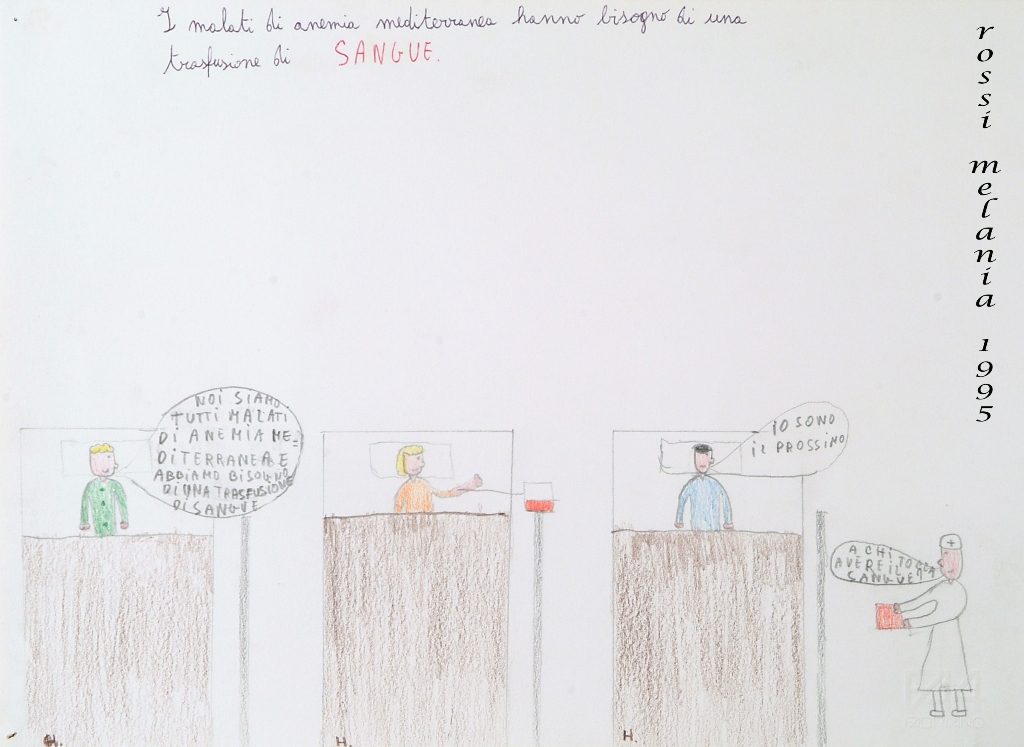 I malati di anemia mediterranea hanno bisogno di una
trasfusione di SANGUE.
rossi melania 1995
NOI SIAMO
TUTTI MALATI
DI ANEMIA ME=
DITERRANEA E
ABBIAMO BISOGNO
DI UNA TRASFUSIONE
DI SANGUE
IO SONO
IL PROSSIMO
A CHI TOCCA
AVERE IL
SANGUE?
H.
H.
H.